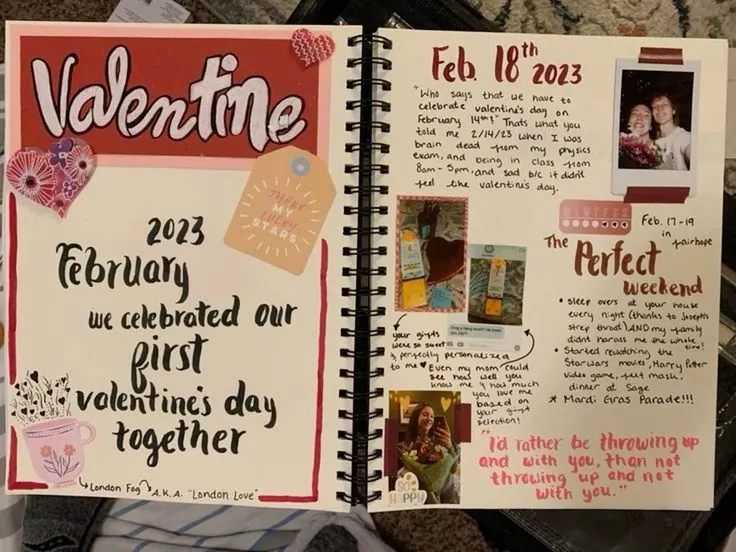 Valentine
THANK
MY
LUCKY
STARS
2023
February
we celebrated our
first
valentine's day
together
London Fog A.K.A. "London Love"
Feb. 18th 2023
"Who says that we have to
celebrate valentine's day on
February 14th?" Thats what you
told me 2/14/23 when I was
brain dead from my physics
exam, and being in class from
8am-5pm, and sad b/c it didn't
feel like valentine's day.
Feb. 17-19
in fairhope
The Perfect
weekend
• sleep overs at your house
every night (thanks to Joseph's
strep throat) AND my family
didnt harass me the whole
time!
• Started rewatching the
Starwars movies, Harry Potter
video game, feet mask,
dinner at Sage
* Mardi Gras Parade!!!
your gifts
were so sweet
& perfectly personalized
to me
Even my mom could
see how well you
know me & how much
you love me
based on
your gift
selection!
SO
HAPPY
"I'd rather be throwing up
and with you, than not
throwing up and not
with you."